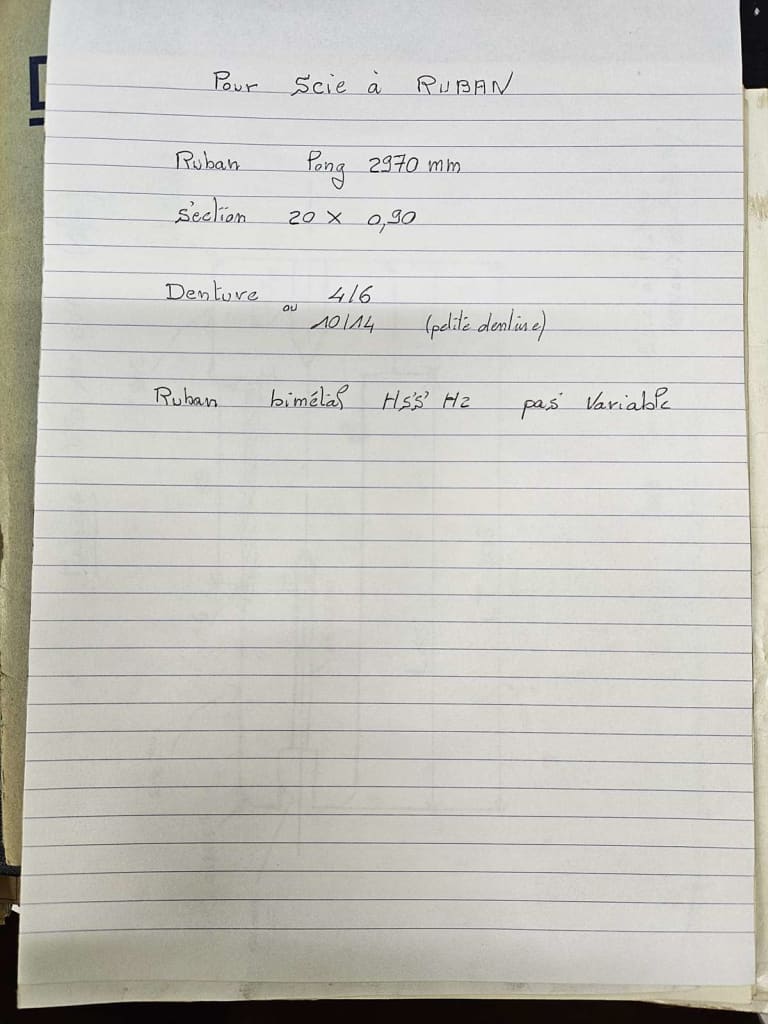 Pour Scie à RUBAN
Ruban long 2970 mm
Section 20 x 0,90
Denture 4/6
ou 10/14 (petite denture)
Ruban bimétal HSS Hz pas variable